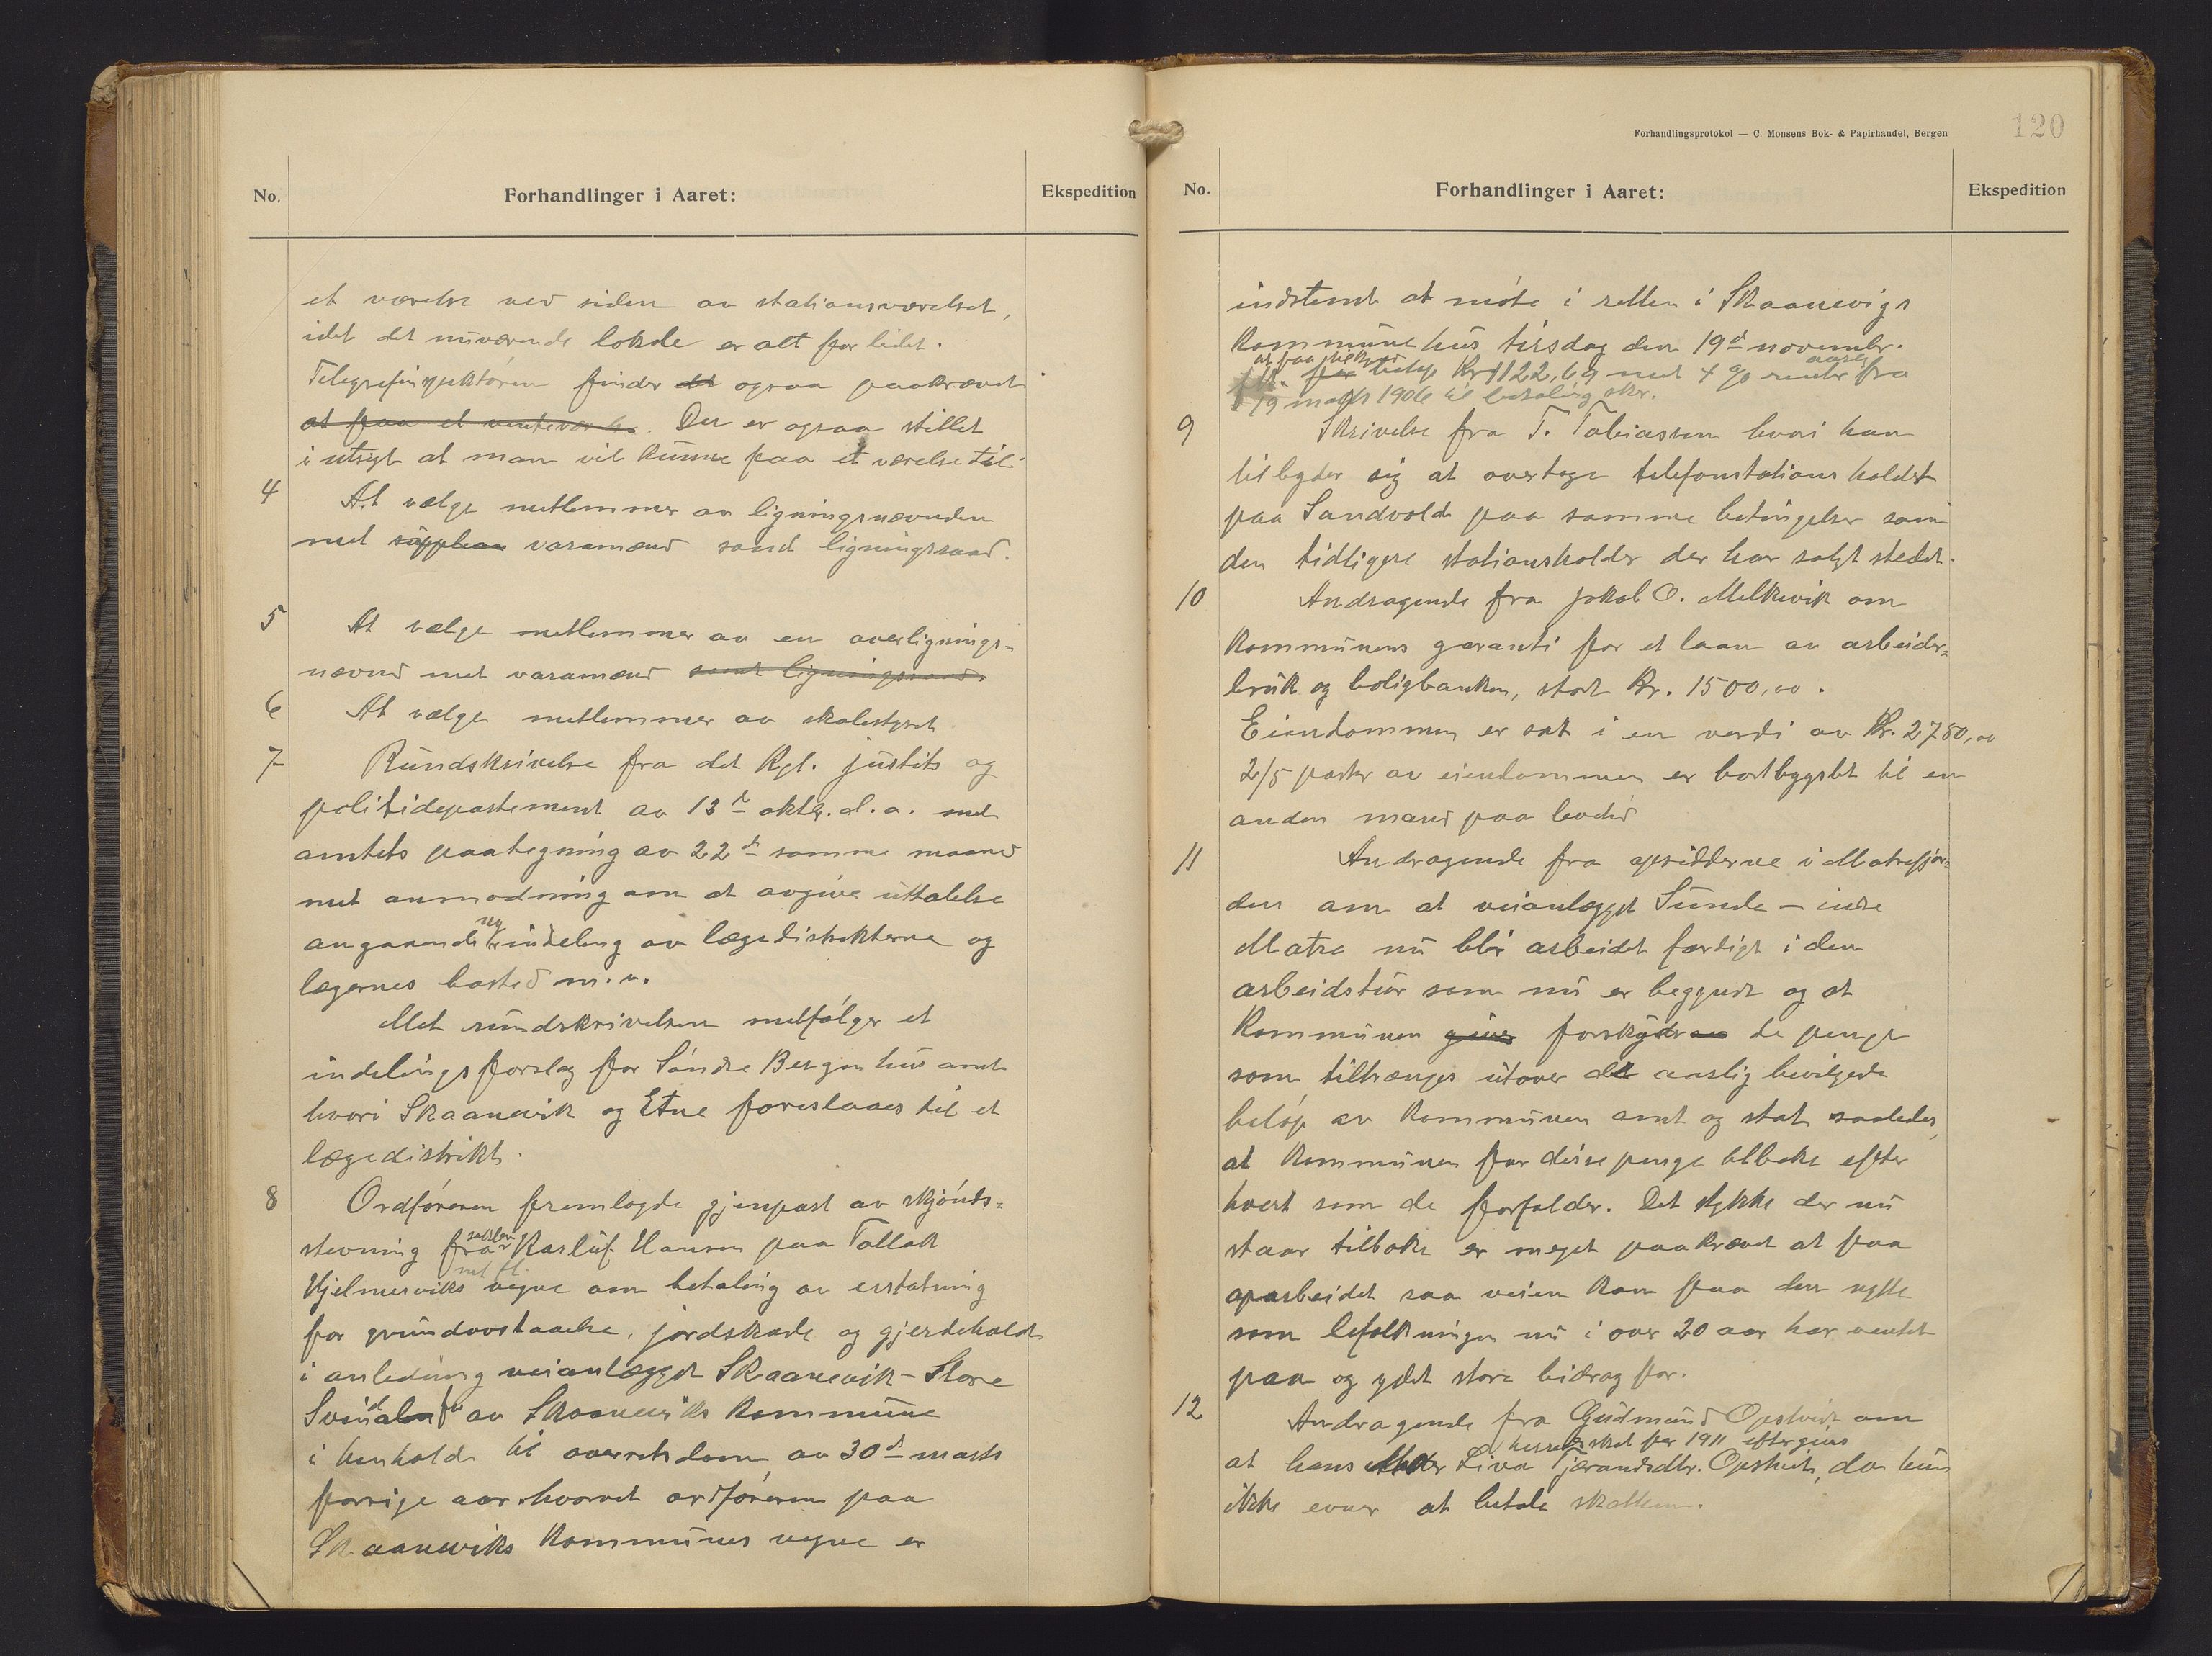 No.
Forhandlinger i Aaret:
Ekspedition
et værelse ved siden av stationsværelset,
idet det nuværende lokale er alt for lidet.
Telegrafinspektøren finder det ogsaa paakrævet
at faa et venteværelse. Der er ogsaa stillet
i utsigt at man vil kunne faa et værelse til.
4 At vælge medlemmer av ligningsnævnden
med supplean varamænd samt ligningsraad.
5 At vælge medlemmer av en overlignings-
nævnd med varamænd samt ligningsraad.
6 At vælge medlemmer av skolestyret
7 Rundskrivelse fra det Kgl. justits og
politidepartement av 13de oktbr. d.a. med
amtets paategning av 22de samme maaned
med anmodning om at avgive uttalelse
angaaende ny inddeling av lægedistrikterne og
lægernes bosted m.v.
Med rundskrivelsen medfølger et
indelingsforslag for Søndre Bergenhus amt
hvori Skaanevik og Etne foreslaaes til et
lægedistrikt.
8 Ordføreren fremlagde gjenpart av skjønds-
stevning fra sakfører Karluf Hansen paa Tollak
Hjelmesviks med fl. vegne om betaling av erstatning
for grundavstaaelse, jordskade og gjerdehold
i anledning veianlægget Skaanevik - Store
Svindal fr av Skaaneviks kommune
i henhold til overretsdom av 30de marts
forrige aar. hvorved ordføreren paa
Skaaneviks kommunes vegne er
Forhandlingsprotokol — C. Monsens Bok- & Papirhandel, Bergen
120
No.
Forhandlinger i Aaret:
Ekspedition
indstevnt at møte i retten i Skaanevigs
kommunehus tirsdag den 19de novembr.
at faa beløp Kr 1122,69 med 4 % aarlig renter fra
19 marts 1906 til betaling sker.
9 Skrivelse fra T. Tobiassen hvori han
tilbyder sig at overtage telefonstationsholdet
paa Sandvold paa samme betingelser som
den tidligere stationsholder der har solgt stedet.
10 Andragende fra Jakob O. Melkevik om
kommunens garanti for et laan av arbeider-
bruk og boligbanken, stort Kr. 1500,00.
Eiendommen er sat i en verdi av Kr. 2750,00
2/5 parter av eiendommen er bortbygslet til en
anden mand paa levetid
11 Andragende fra opsidderne i Matrefjor-
den om at veianlægget Sunde - indre
Matre nu blir arbeidet færdigt i den
arbeidstur som nu er begyndt og at
kommunen giver forskyderen de penge
som tiltrænges utover det aarlig bevilgede
beløp av kommunen amt og stat saaledes,
at kommunen faar disse penge tilbake efter
hvert som de forfalder. Det stykke der nu
staar tilbake er meget paakrævet at faa
oparbeidet saa veien kan faa den nytte
som befolkningen nu i over 20 aar har ventet
paa og ydet store bidrag for.
12 Andragende fra Gudmund Opstveit om
at hans Moder Liva Tjerandsdtr. Opstveit herredsskat for 1911 eftergives, da hun
ikke evner at betale skatten.